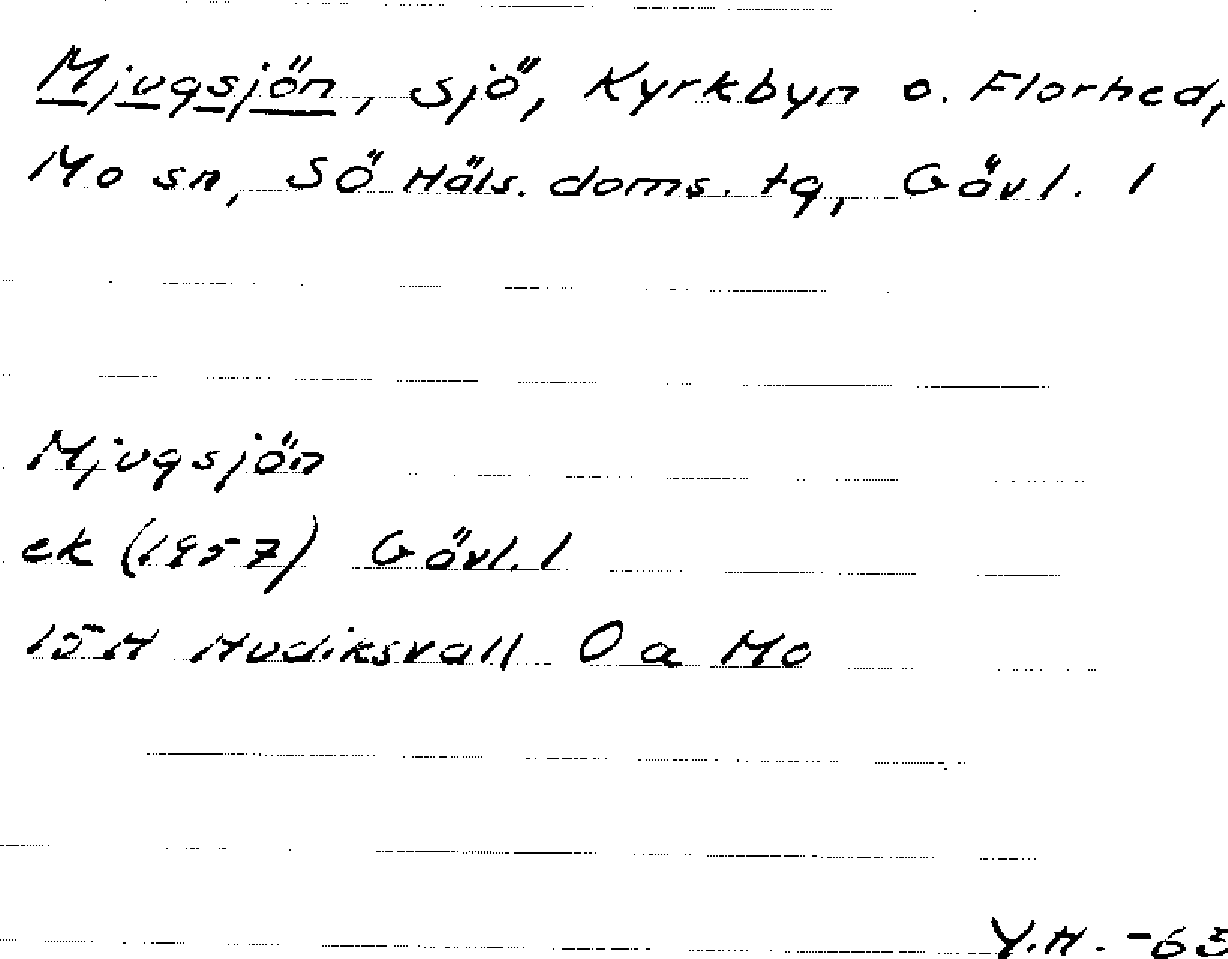 Mjugsjön, sjö, Kyrkbyn o. Florhed,
Mo sn, SÖ Häls. doms. tg, Gävl. l
Mjugsjön
ek (1957) Gävl. l
15H Hudiksvall O a Mo
Y.H. -63